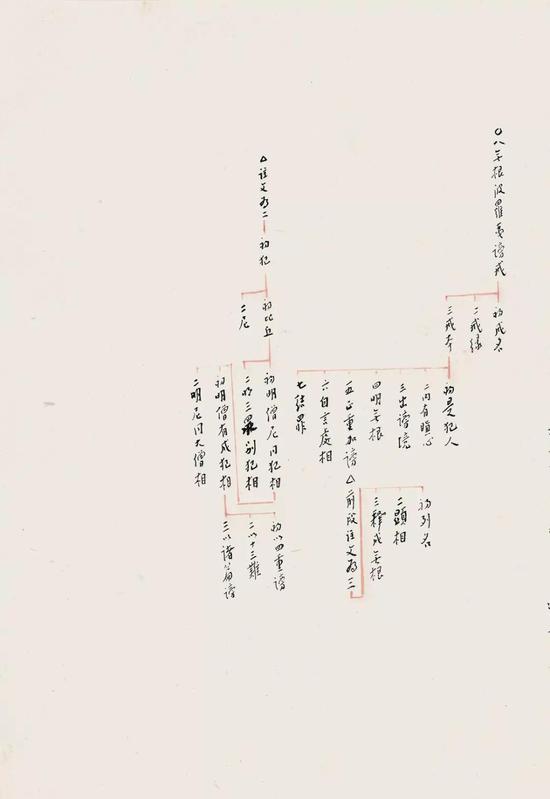 〇八無根波羅夷謗戒
初戒名
二戒緣
三戒本
初是犯人
二內有瞋心
三出謗境
四明無根
五正重加謗
六自言處相
七結罪
△前段注文為三
初列名
二顯相
三釋成無根
△注文為二
初犯
初比丘
二尼
初明僧尼同犯相
二明三眾別犯相
初明僧有戒犯相
二明尼同大僧相
初以四重謗
二以十三難
三以諸篇謗